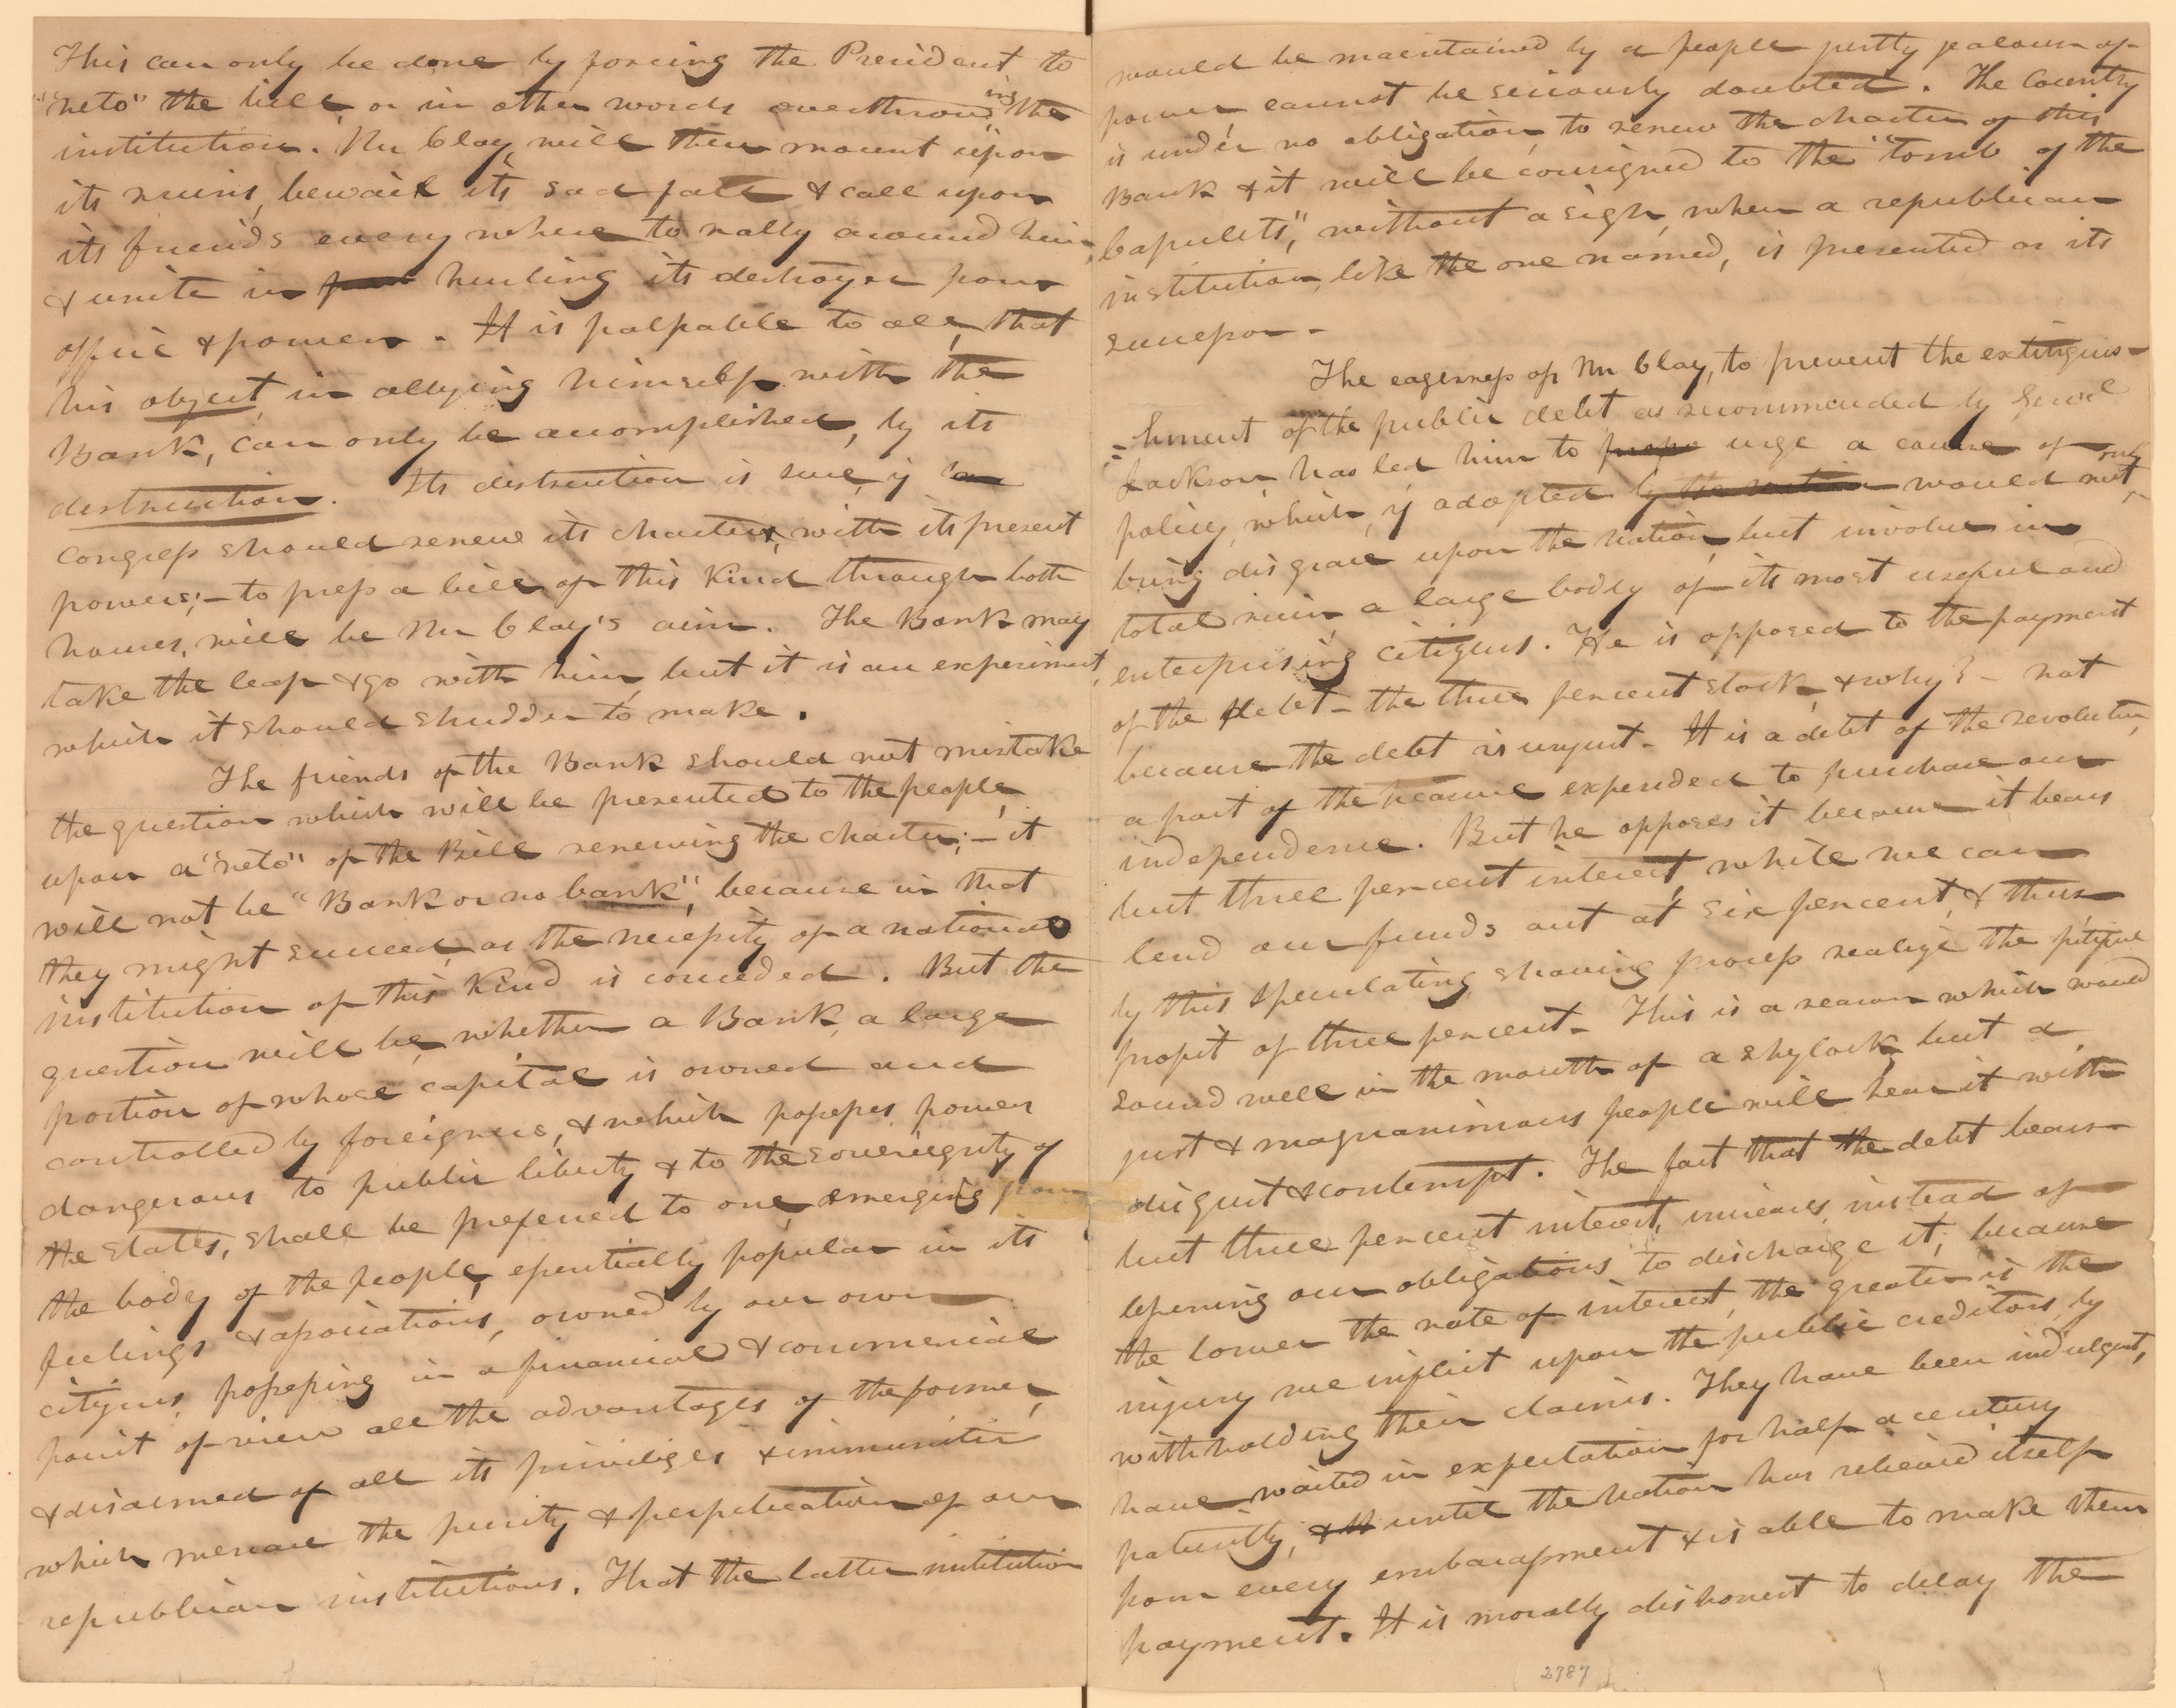 This can only be done by forcing the President to
"veto" the bill, or in other words overthrowing the
institution. Mr Clay will then mount upon
its ruins, bewail its sad fall & call upon
its friends every where to rally around him,
& unite in hurling its destroyer from
office & power. It is palpable to all, that
his object, in allying himself with the
Bank, can only be accomplished, by its
destruction. Its destruction is sure, if
Congress should renew its charter, with its present
powers;—to press a bill of this kind through both
houses, will be Mr Clay's aim. The Bank may
take the leap & go with him, but it is an experiment,
which it should shudder to make.
The friends of the Bank should not mistake
the question which will be presented to the people,
upon a "veto" of the Bill renewing the charter;—it
will not be "Bank or no bank", because in that
they might succeed, as the necessity of a national
institution of this kind is conceded. But the
question will be, whether a Bank, a large
portion of whose capital is owned and
controlled by foreigners, & which possesses powers
dangerous to public liberty & to the sovereignty of
the States, shall be preferred to one, emerging from
the body of the people, essentially popular in its
feelings & associations, owned by our own
citizens, possessing in a financial & commercial
point of view all the advantages of the former,
& disarmed of all its priviliges & immunities
which menace the purity & perpetuation of our
republican institutions. That the latter institution
would be maintained by a people justly jealous of
power, cannot be seriously doubted. The Country
is under no obligation, to renew the charter of this
Bank & it will be consigned to the "tomb of the
Capulets", without a sigh, when a republican
institution, like the one named, is presented as its
successor—
The eagerness of Mr Clay, to prevent the extinguis-
=hment of the public debt, as recommended by Genl
Jackson has led him to urge a course of
policy, which, if adopted by the nation would not only
bring disgrace upon the nation, but involve in
total ruin a large body of its most useful and
enterprising citizens. He is opposed to the payment
of the debt—the three percent stock, & why?— not
because the debt is unjust— It is a debt of the revolution,
a part of the treasure expended to purchase our
independence. But he opposes it because it bears
but three percent interest, while we can
lend our funds out at six percent, & thus
by this speculating, shaving process realize the pitiful
profit of three percent— This is a reason which would
sound well in the mouth of a shylock, but a
just & magnanimous people will hear it with
disgust & contempt. The fact that the debt bears
but three percent interest, increases, instead of
lessening our obligations to discharge it, because
the lower the rate of interest, the greater is the
injury we inflict upon the public creditors, by
withholding their claims. They have been indulgent,
have waited in expectation for half a century
patiently, until the nation has relieved itself
from every embarassment & is able to make them
payment. It is morally dishonest to delay the
2787